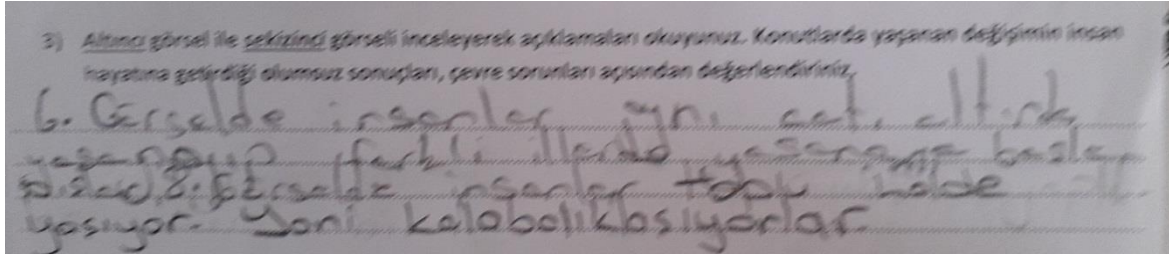 3) Altıncı görsel ile sekizinci görseli inceleyerek açıklamaları okuyunuz. Konutlarda yaşanan değişimin insan
hayatına getirdiği olumsuz sonuçları, çevre sorunları açısından değerlendiriniz.
6. Görselde insanlar aynı çatı altında
yaşamayıp farklı illerde yaşamaya başla
8. görselde insanlar toplu halde
yaşıyor. Yani kalabalıklaşıyorlar.